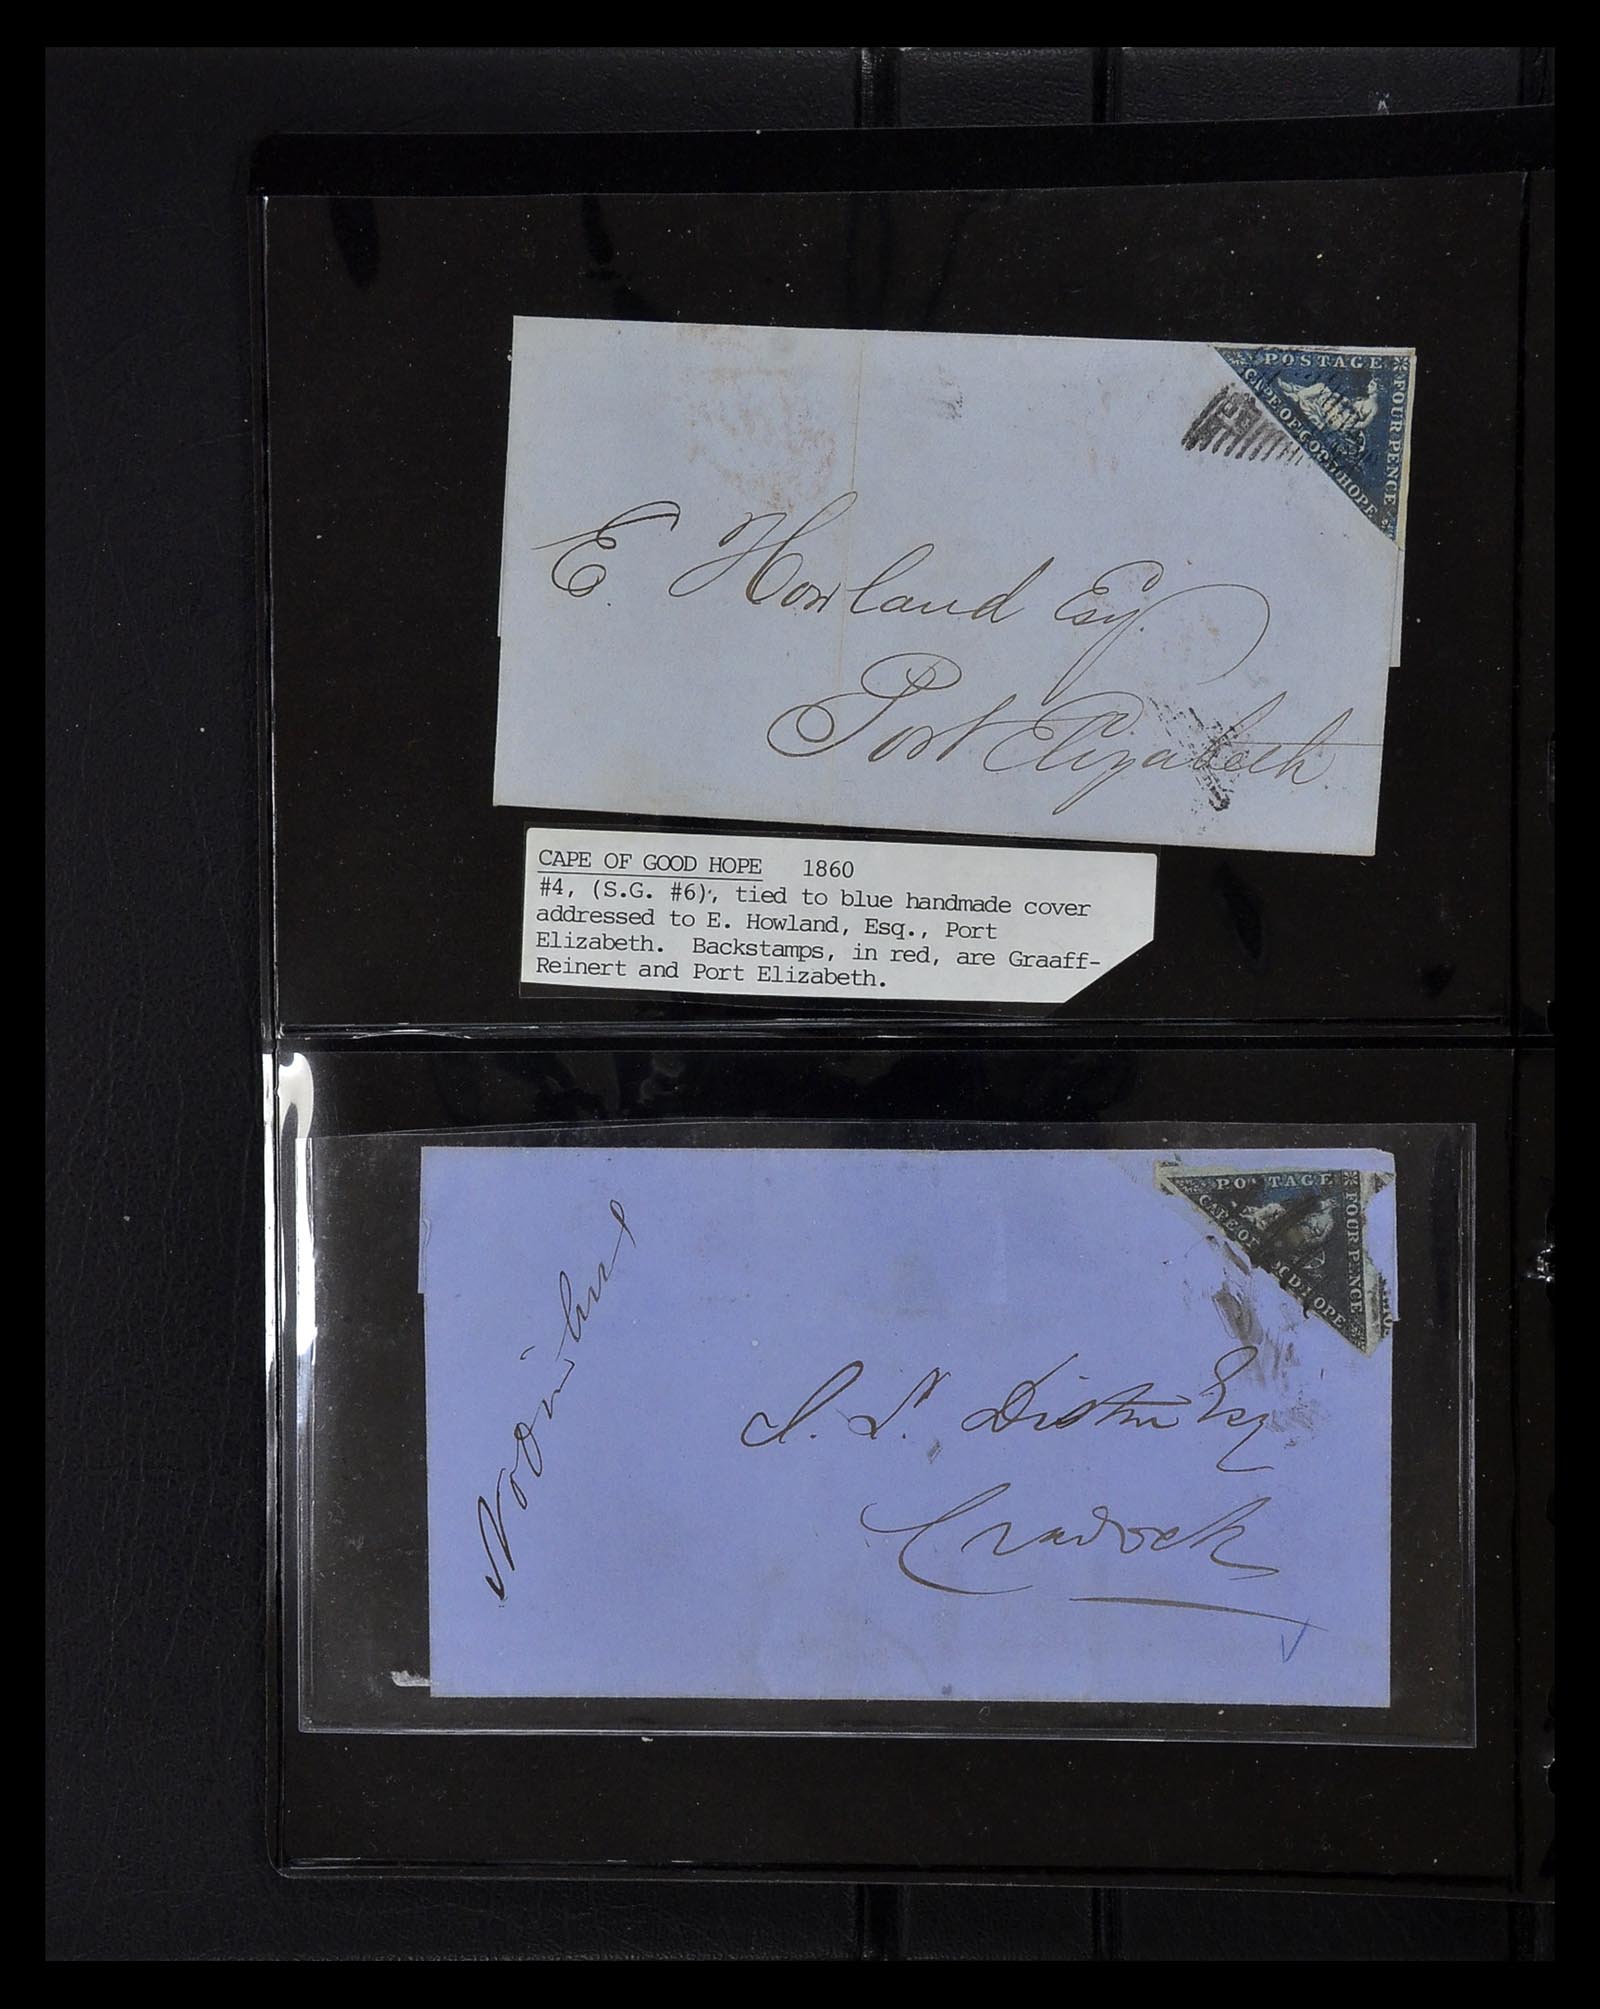 POSTAGE
FOUR PENCE
CAPE OF GOOD HOPE
E. Howland Esq.
Port Elizabeth
CAPE OF GOOD HOPE 1860
#4, (S.G. #6), tied to blue handmade cover
addressed to E. Howland, Esq., Port
Elizabeth. Backstamps, in red, are Graaff-
Reinert and Port Elizabeth.
POSTAGE
FOUR PENCE
CAPE OF GOOD HOPE
Esq
Cradock